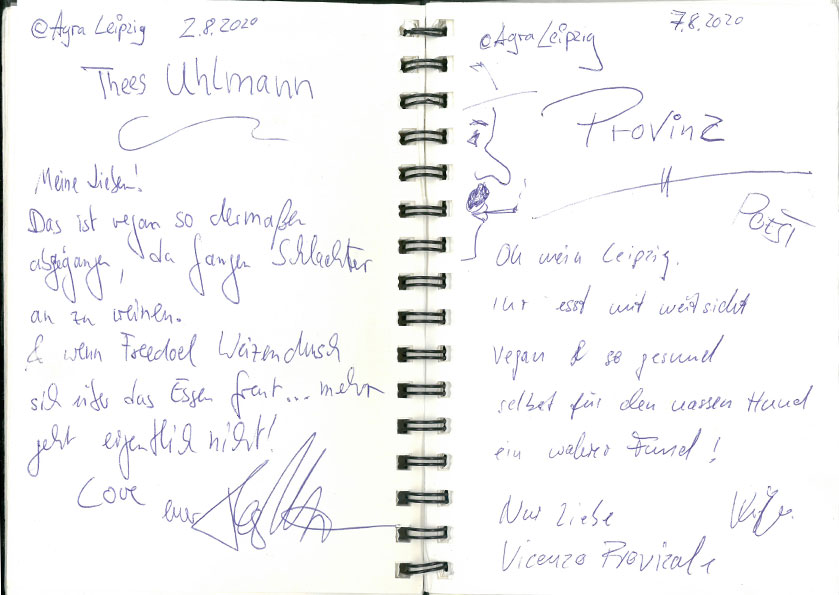 © Agra Leipzig 2.8.2020
Thees Uhlmann
Meine Lieben!
Das ist vegan so dermaßen
abgegangen, da fangen Schlachter
an zu weinen.
& wenn Freedoel Weizendusch
sich über das Essen freut... mehr
geht eigentlich nicht!
Love
euer
© Agra Leipzig 7.8.2020
Provinz
Oh mein Leipzig.
ihr esst mit weitsicht
vegan & so gesund
selbst für den nassen Hund
ein wahrer Fund!
Nur Liebe
Vicenzo Provizale